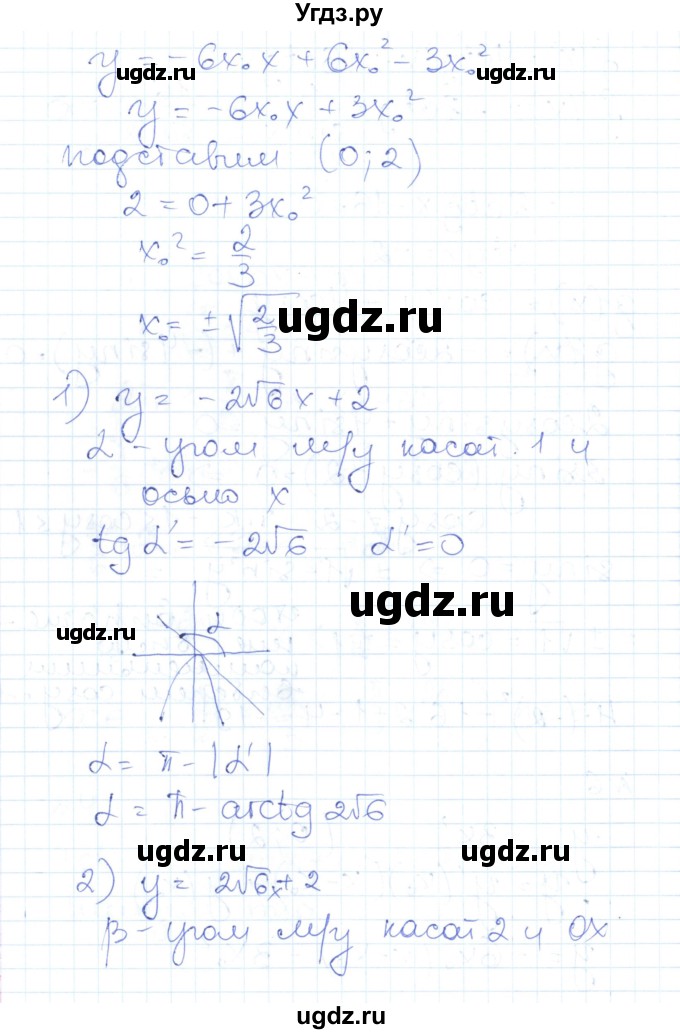 Угдз.ру
y = -6x₀x + 6x₀² - 3x₀²
ugdz.ru ugdz.ru ugdz.ru
y = -6x₀x + 3x₀²
подставим (0;2)
2 = 0 + 3x₀²
x₀² = 2/3
x₀ = ±√(2/3)
ugdz.ru ugdz.ru
1) y = -2√6x + 2
α - угол м/у касат. 1 и
осью x
tg α' = -2√6 α' = 0
ugdz.ru
ugdz.ru
α
α = π - |α'|
α = π - arctg 2√6
ugdz.ru ugdz.ru
2) y = 2√6x + 2
β - угол м/у касат 2 и Ox
ugdz.ru